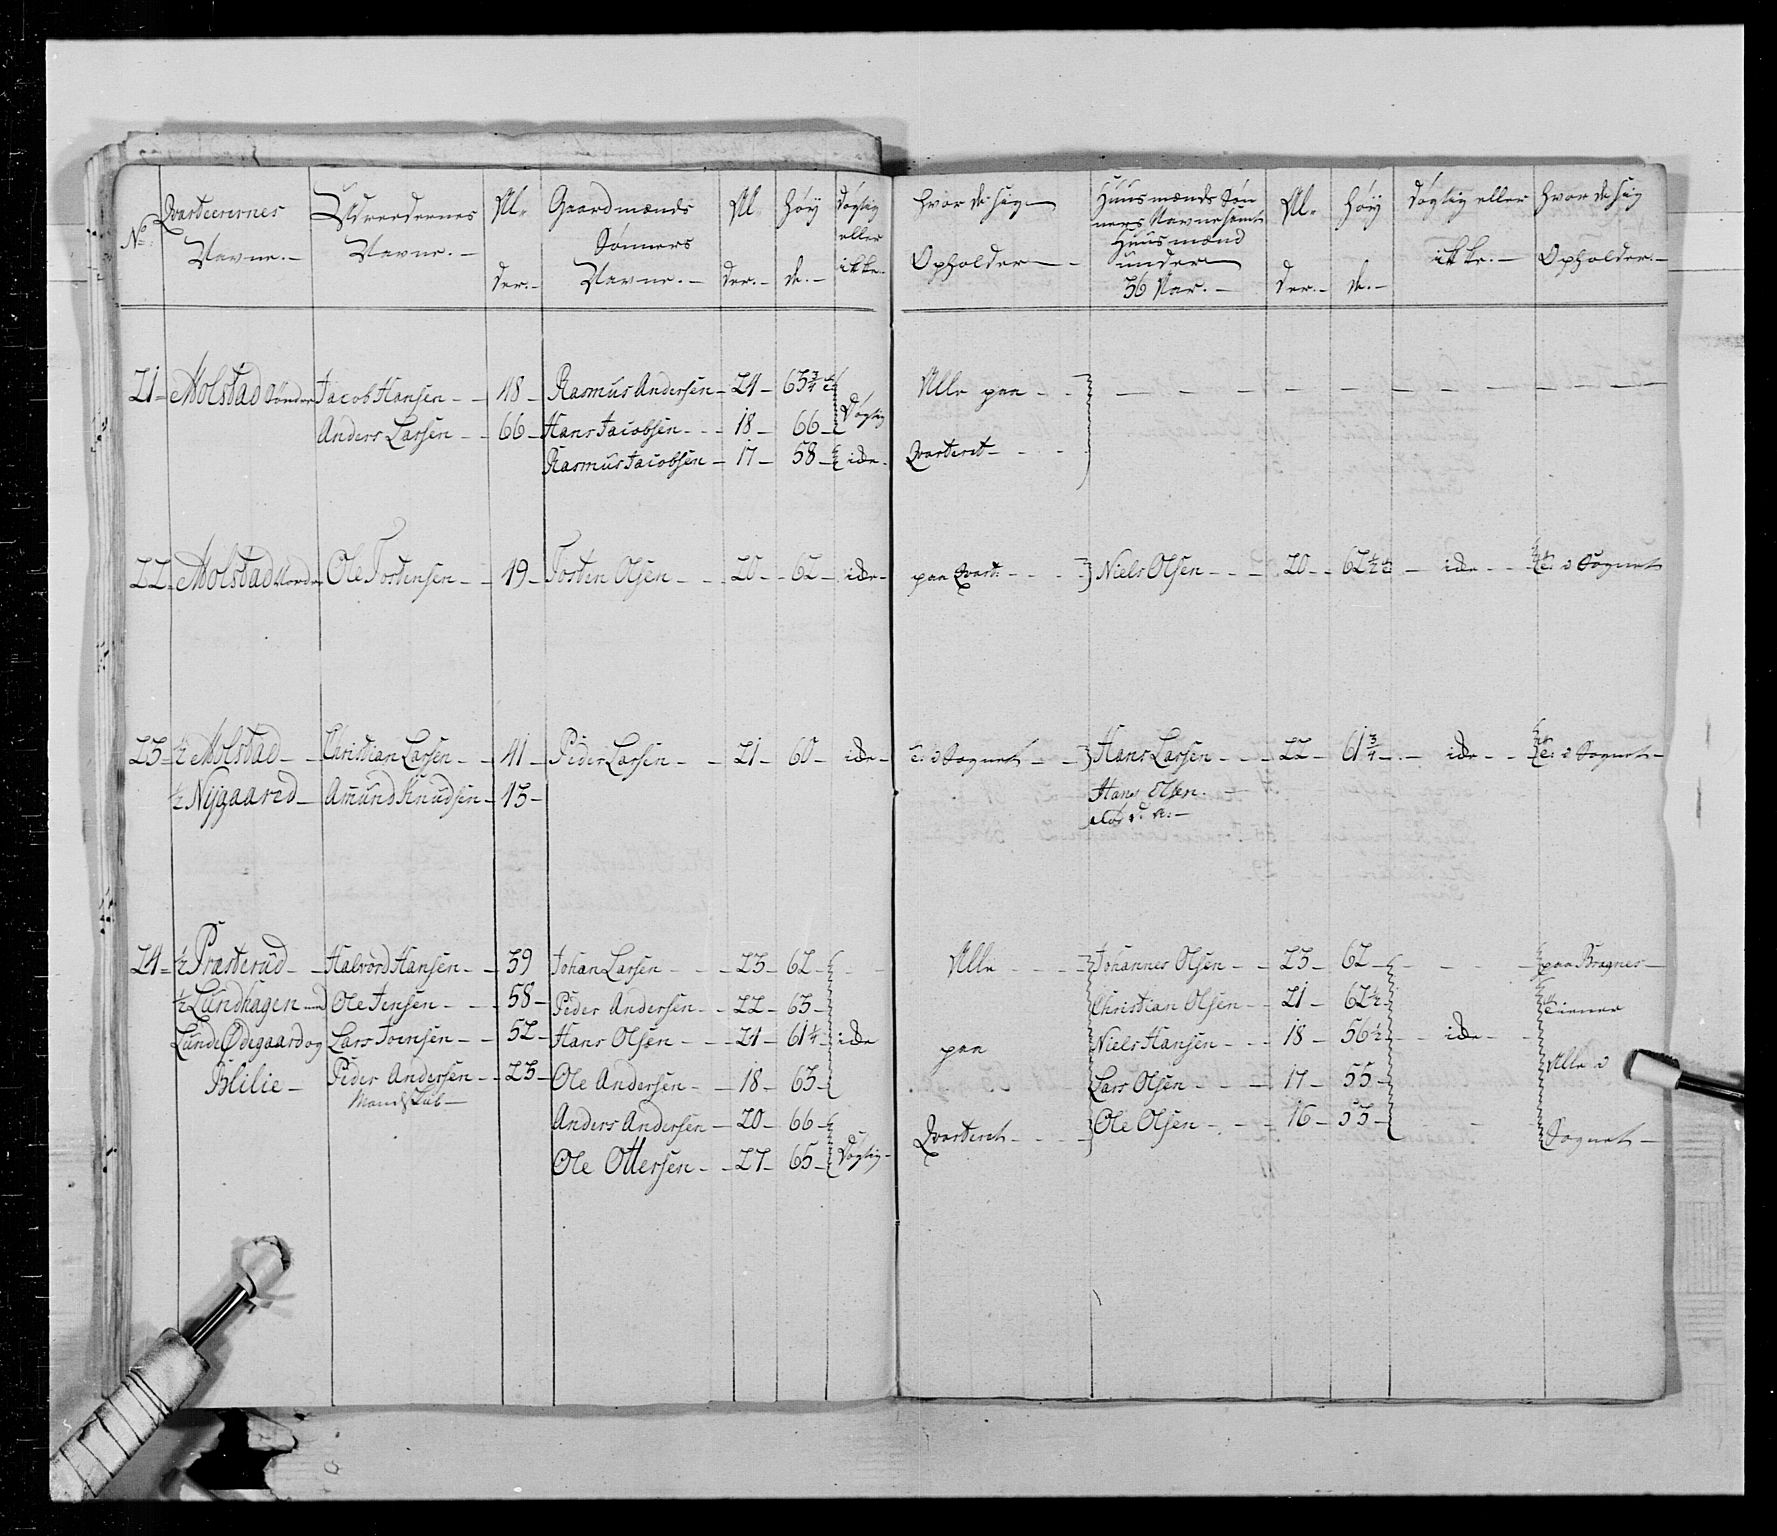 No. Qvarteerernes Navne.- Udreedernes Navne.- Al-der.- Gaardmænds Sønners Navne.- Al-der.- Høy-de.- Dygtig eller ikke.- Hvor de sig Opholder- Huusmænds Søn-ners Navne samt Huusmænd under 36 Aar.- Al-der.- Høy-de.- Dygtig eller ikke.- Hvor de sig Opholder.-
21- Molstad Søndre Jacob Hansen - - 48 - Rasmus Andersen - 24 - 63 3/4 Dygtig Alle paa - -
Anders Larsen - - 66 - Hans Jacobsen - - - 18 - 66 -
Rasmus Jacobsen - 17 - 58 - ikke - Qvarteret - - - -
22- Molstad Nordre Ole Tostensen - - 49 - Tosten Olsen - - - 20 - - 62 - ikke - paa Qvart: - - - - Niels Olsen - - - 20 - - 62 1/2 - ikke - - i Sognet
23- 1/2 Molstad - - Christian Larsen - - 41 - Peder Larsen - - - 21 - 60 - ikke - i Sognet - - - Hans Larsen - - - 22 - - 61 3/4 - ikke - - i Sognet -
1/2 Nygaard - Amund Knudsen - 43 - Hans Olsen. -
24- 1/2 Præsterud - - Halvord Hansen - - 39 Johan Larsen - - - 23 - 62 - Alle - - - - Johannes Olsen - - 23 - 62 - - - - paa Bragnes -
1/2 Lundhagen med Ole Jensen - - - 58 - Peder Andersen - - 22 - 63 - Christian Olsen - - 21 - 62 1/2 -
Lunde Ødegaard og Lars Joensen - - 52 - Hans Olsen - - - 24 - 61 1/4 - ikke paa Niels Hansen - - - 18 - 56 1/2 - - ikke - -
Blilie - Peder Andersen - - 23 - Ole Andersen - - 18 - 63 - Lars Olsen - - - 17 - 55 - Alle i
Anders Andersen - 20 - 66 - Qvarteret - - - - Ole Olsen - - - - 16 - 53 - Sognet -
Ole Ottersen - - 27 - 65 - Dygtig -